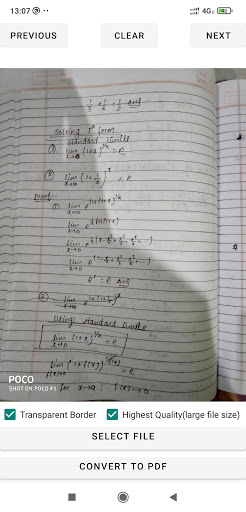 13:07
4G
PREVIOUS CLEAR NEXT
1/3 + 1/6 = 1/2 Ans
Solving 1^∞ form
standard limits
① lim x→0 (1+x)^1/x = e
② lim x→∞ (1+1/x)^x = e
Proof:-
① lim x→0 e^ln(1+x)^1/x
lim x→0 e^1/x ln(1+x)
lim x→0
lim x→0
e^1 = e Ans
②
Using standard limits
lim x→0 (1+x)^1/x = e
lim f(x)→0 (1+f(x))^1/f(x) = e
for x→a ; f(x)→0
POCO
SHOT ON POCO F1
Transparent Border Highest Quality(large file size)
SELECT FILE
CONVERT TO PDF